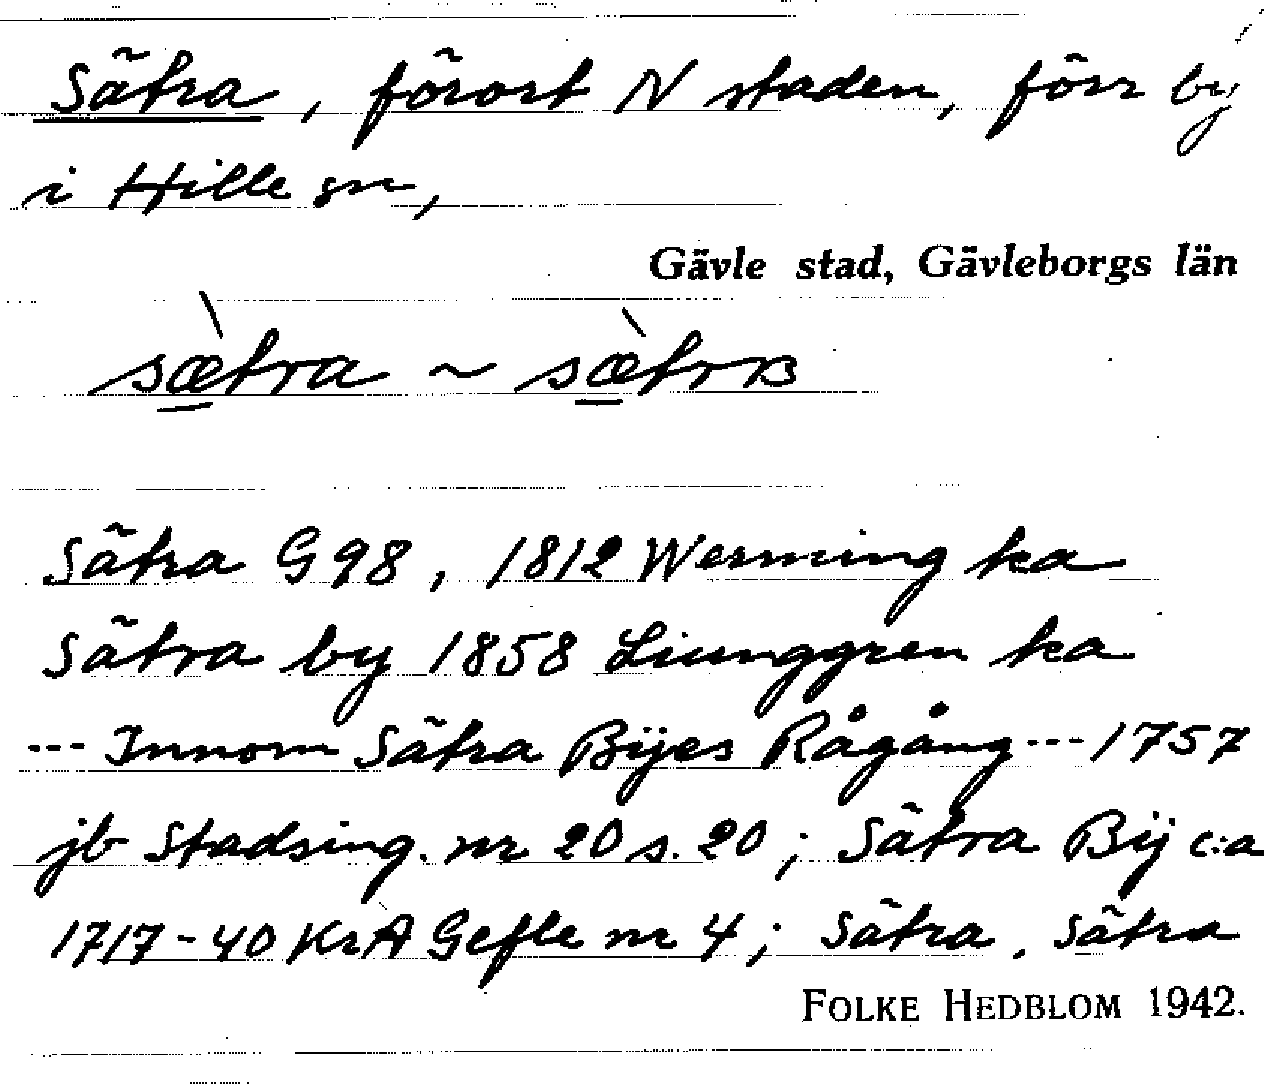 Sätra, förort N staden, förr by
i Hille sn,
Gävle stad, Gävleborgs län
sæ̀tra ~ sæ̀trʙ
Sätra G98, 1812 Werming ka
Sätra by 1858 Liunggren ka
--- Innom Sätra Bÿes Rågång --- 1757
jb Stadsing. nr 20 s. 20; Sätra Bÿ c:a
1717-40 KrA Gefle nr 4; Sätra, Sätra
FOLKE HEDBLOM 1942.